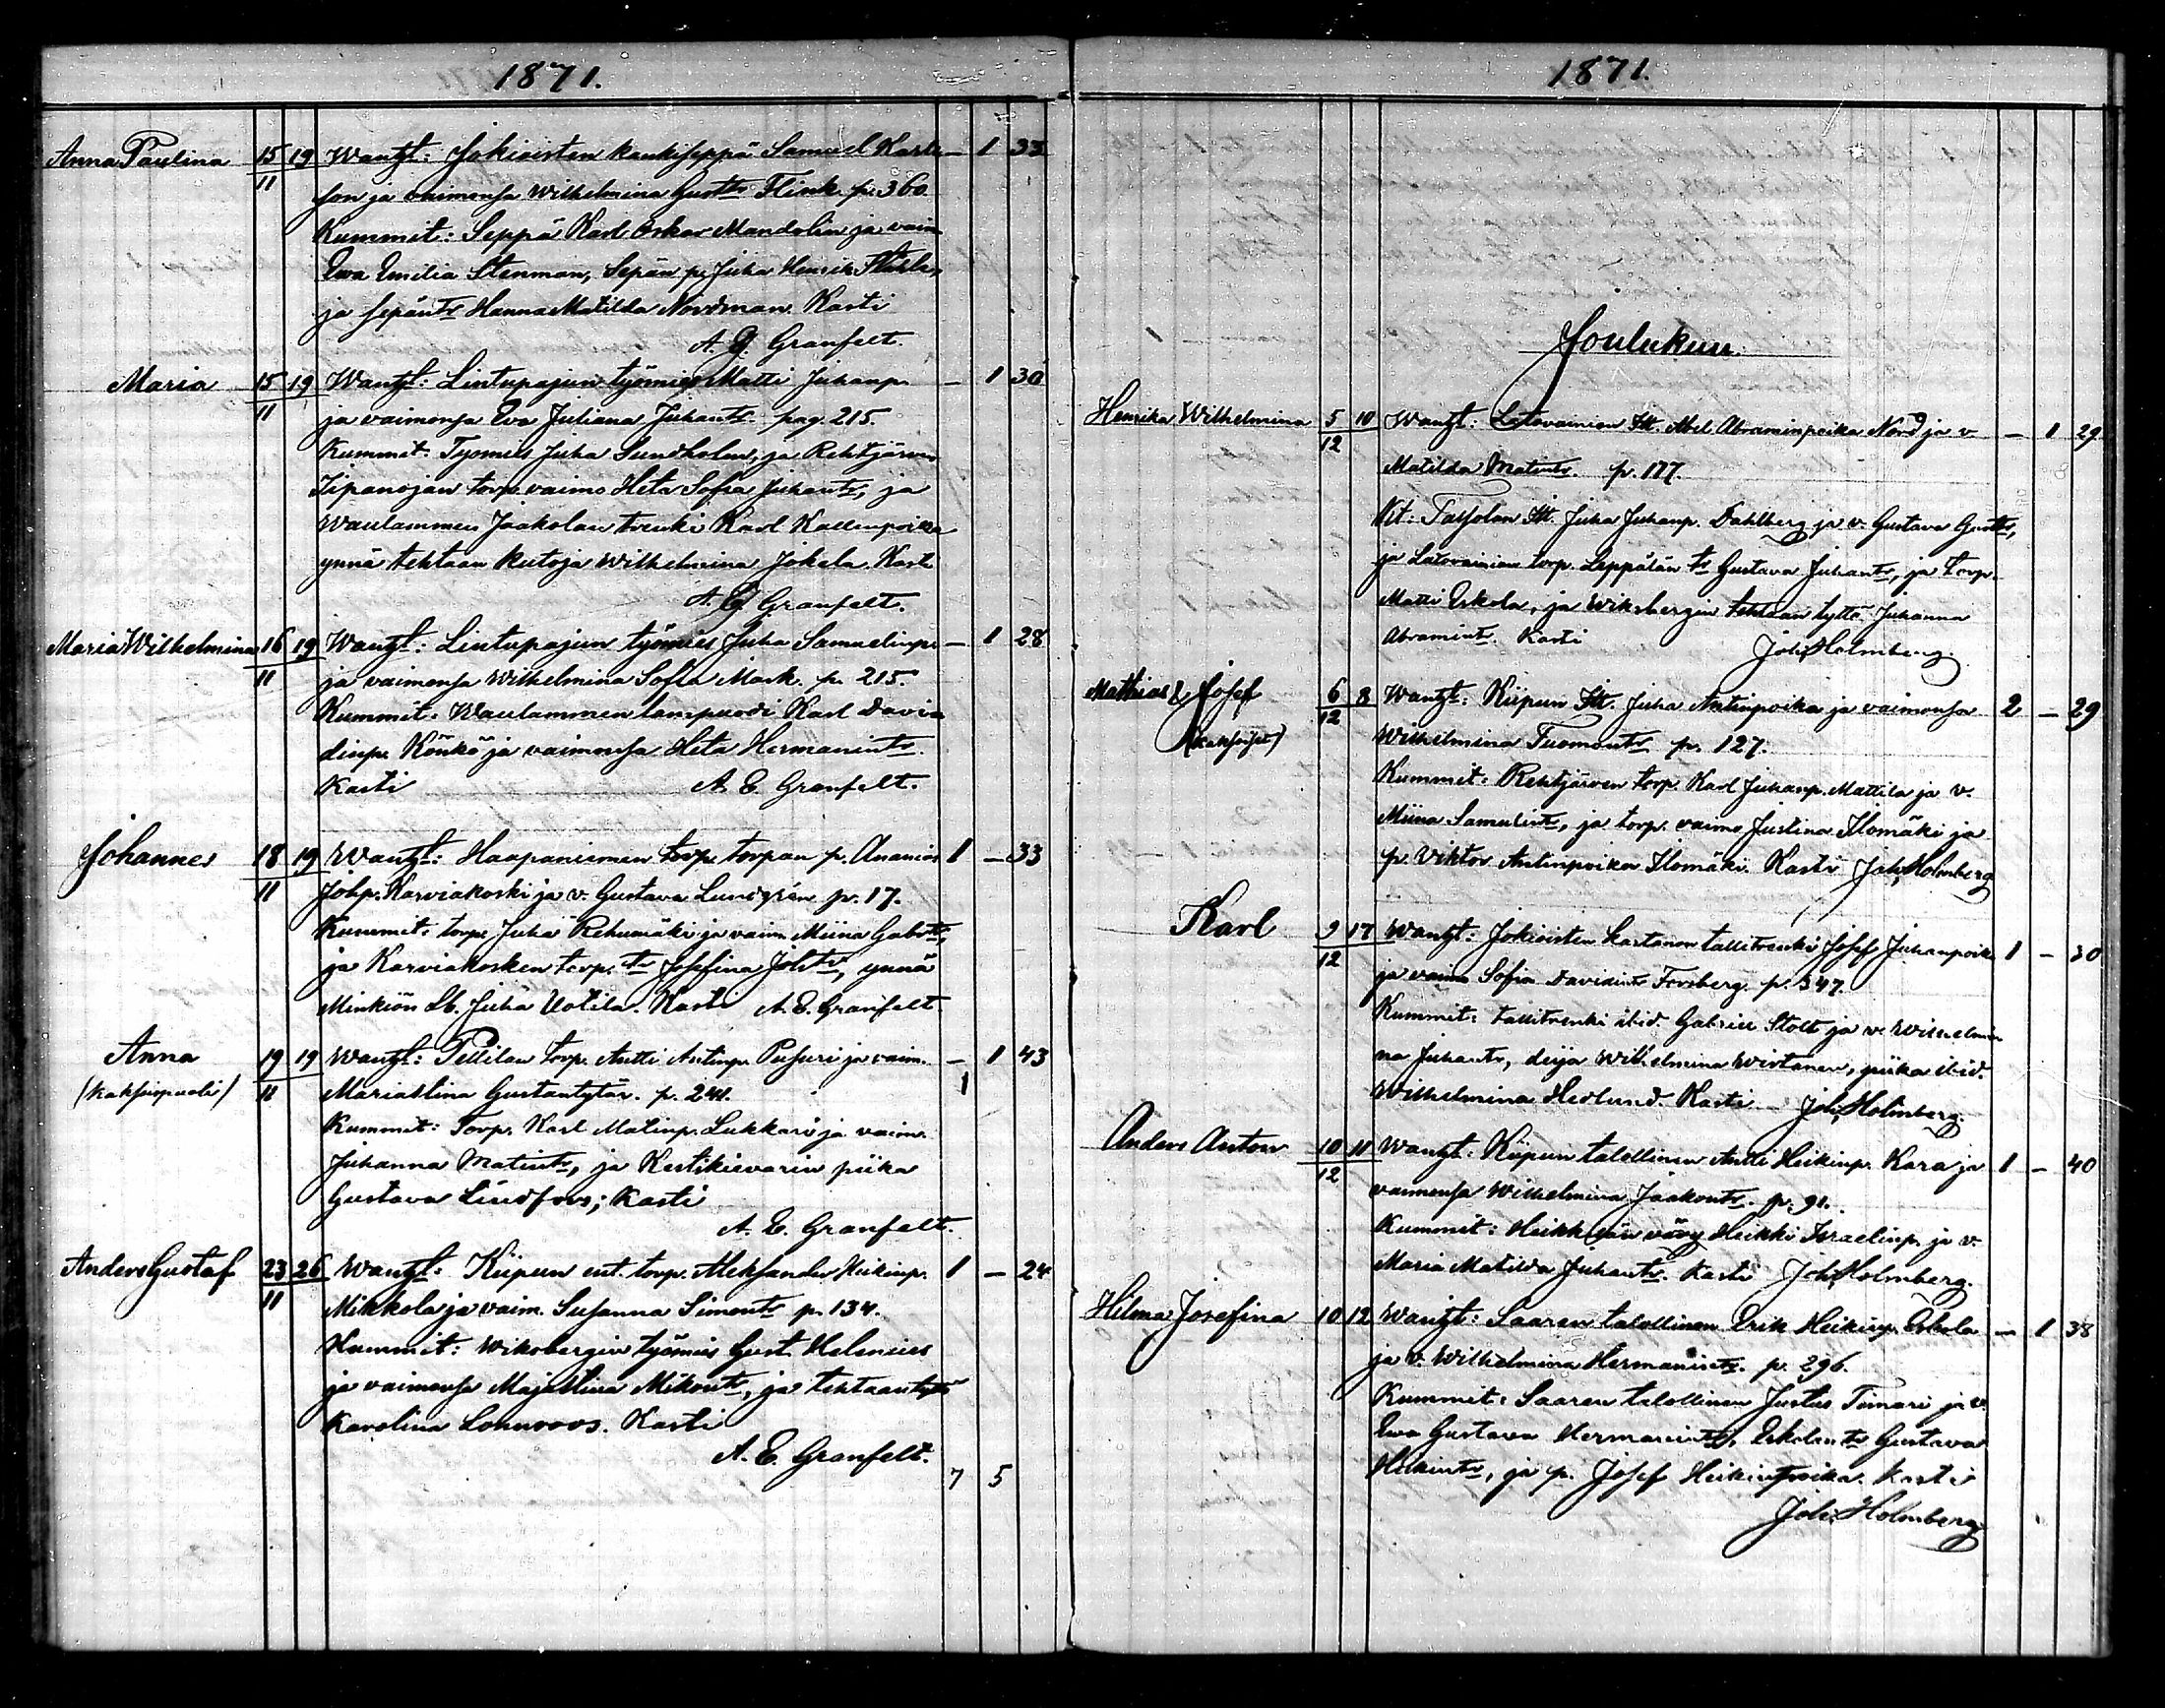 1871.
Anna Paulina 15/11 19 Wanht: Jokioisten kankiseppä Samuel Karls- — 1 33
son ja vaimonsa Wilhelmina Gustts Flink p. 360.
Kummit: Seppä Karl Oskar Mandelin ja vaim
Ewa Emilia Stenman, Sepän p. Juha Henrik
ja sepänts Hanna Matilda Nordman. Kasti
A. E. Granfelt.
Maria 15/11 19 Wanht: Lintupajun työmies Matti Juhanp. — 1 30
ja vaimonsa Eva Juliana Juhants. pag. 215.
Kummit: Tyomies Juha Sundholm, ja Rehtijärven
torp. vaimo Heta Sofia Juhants, ja
Waulammen Jaakolan trenki Karl Kallenpoika
ynnä tehtaan kutoja Wilhelmina Jokela. Kasti
A. E. Granfelt.
Maria Wilhelmina 16/11 19 Wanht: Lintupajun työmies Juha Samuelinp. — 1 28
ja vaimonsa Wilhelmina Sofia Mark. p. 215.
Kummit: Waulammen lampuodi Karl Davi-
dinp. Könkö ja vaimonsa Heta Hermanints.
Kasti A. E. Granfelt.
Johannes 18/11 19 Wanht: Haapaniemen torp. torpan p. Ananias 1 — 33
Johp. Karviakoski ja v. Gustava Lundgrén p. 17.
Kummit: torp. Juha Rehumäki ja vaim. Miina Gabrts,
ja Karviakosken torp. ts Josefina Johts, ynnä
Minkiön Lb. Juha Uotila. Kasti A. E. Granfelt.
Anna 19/11 19 Wanht: Pellilan torp. Antti Antinp. Pusuri ja vaim. — 1 43
(kaksoispuoli) Maria Stina Gustantytär. p. 241. 1
Kummit: Torp. Karl Matinp. Lukkari ja vaim.
Juhanna Matints, ja Kestikievarin piika
Gustava Lindfors; Kasti
A. E. Granfelt.
Anders Gustaf 23/11 26 Wanht: Kiipun ent. torp. Aleksander Heikinp. 1 — 24
Mikkola ja vaim. Susanna Simonts p. 134.
Kummit: Wiksbergin työmies Gust. Helenius
ja vaimonsa Maja Stina Mikonts, ja tehtaantyttö
Karolina Lönnroos. Kasti
A. E. Granfelt.
7 5
1871.
Joulukuu.
Henrika Wilhelmina 5/12 10 Wanht: Latovainion Itt. Abel Abraminpoika Nord ja v. — 1 29
Matilda Matints. p. 177.
Kit: Itt. Juha Juhanp. Dahlberg ja v. Gustava Gustts,
ja Latovainion torp. Leppälän ts Gustava Juhants, ja torp.
Matti Eskola, ja Wiksbergin tehtaan tyttö Juhanna
Abramints. Kasti Joh. Holmberg.
Mathias & Josef 6/12 8 Wanht: Kiipun Itt. Juha Antinpoika ja vaimonsa 2 — 29
(kaksoiset) Wilhelmina Tuomonts. p. 127.
Kummit: Rehtijärven torp. Karl Juhanp. Mattila ja v.
Miina Samulints, ja torp. vaimo Justina Ilomäki ja
p. Viktor Antinpoika Ilomäki. Kasti Joh. Holmberg
Karl 9/12 17 Wanht: Jokioisten kartanon tallitrenki Josef Juhanpoika 1 — 30
ja vaimo Sofia Davidints Forsberg. p. 347.
Kummit: tallitrenki ibid. Gabriel Stolt ja v. Wilhelmi-
na Juhants, Wilhelmina Wirtanen, piika ibid.
Wilhelmina Hedlund. Kasti Joh. Holmberg.
Anders Anton 10/12 11 Wanht: Kiipun talollinen Antti Heikinp. Kara ja 1 — 40
vaimonsa Wilhelmina Jaakonts. p. 91.
Kummit: Heikkilän Heikki Israelinp. ja v.
Maria Matilda Juhants. Kasti Joh. Holmberg.
Hilma Josefina 10 12 Wanht: Saaren talollinen Erik Heikinp. Eskola — 1 38
ja v. Wilhelmina Hermanints. p. 296.
Kummit: Saaren talollinen Justus Timari ja v.
Ewa Gustava Hermanints, Eskolan ts Gustava
Heikints, ja p. Josef Heikinpoika. Kasti
Joh. Holmberg